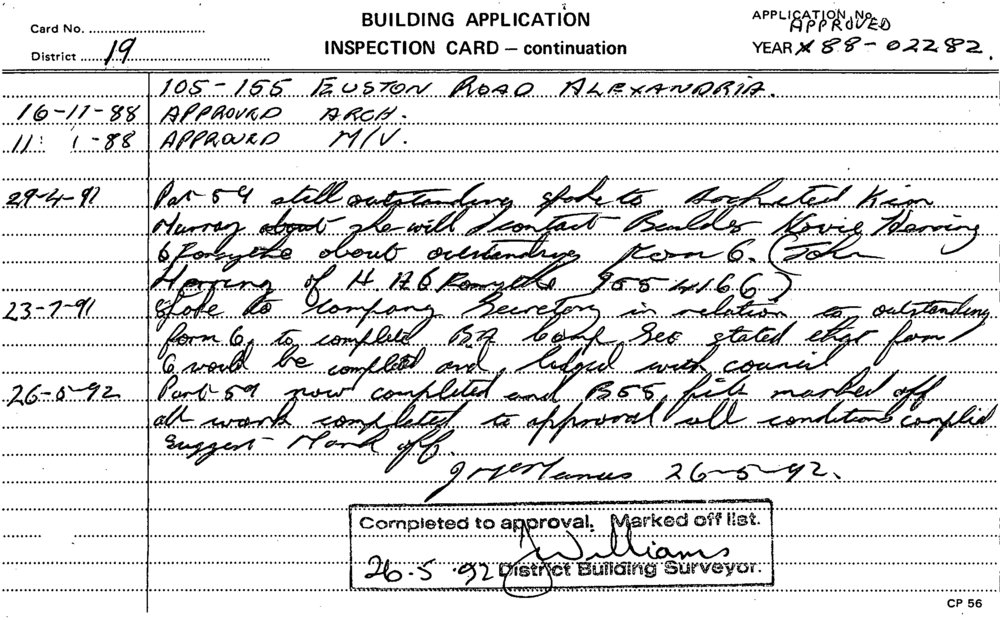 Card No.
BUILDING APPLICATION
APPLICATION No.
APPROVED
District 19
INSPECTION CARD – continuation
YEAR X 88-02282.
105-155 EUSTON ROAD ALEXANDRIA.
16-11-88 APPROVED ARCH.
11: 1-88 APPROVED M/V.
29-4-91 Part 59 still outstanding spoke to Kim
Murray about she will contact Builder Herring
& Forsythe about outstanding Form 6. (John
Herring of H & Forsythe 955-4166)
23-7-91 Spoke to Company Secretary in relation to outstanding
form 6, to complete B.A Comp Sec stated that form
6 would be completed and lodged with council
26-5-92 Part 59 now completed and file marked off
all work completed to approval all conditions complied
Suggest Mark off.
J McManus 26-5-92.
Completed to approval. Marked off list.
Williams
26.5.92 District Building Surveyor.
CP 56